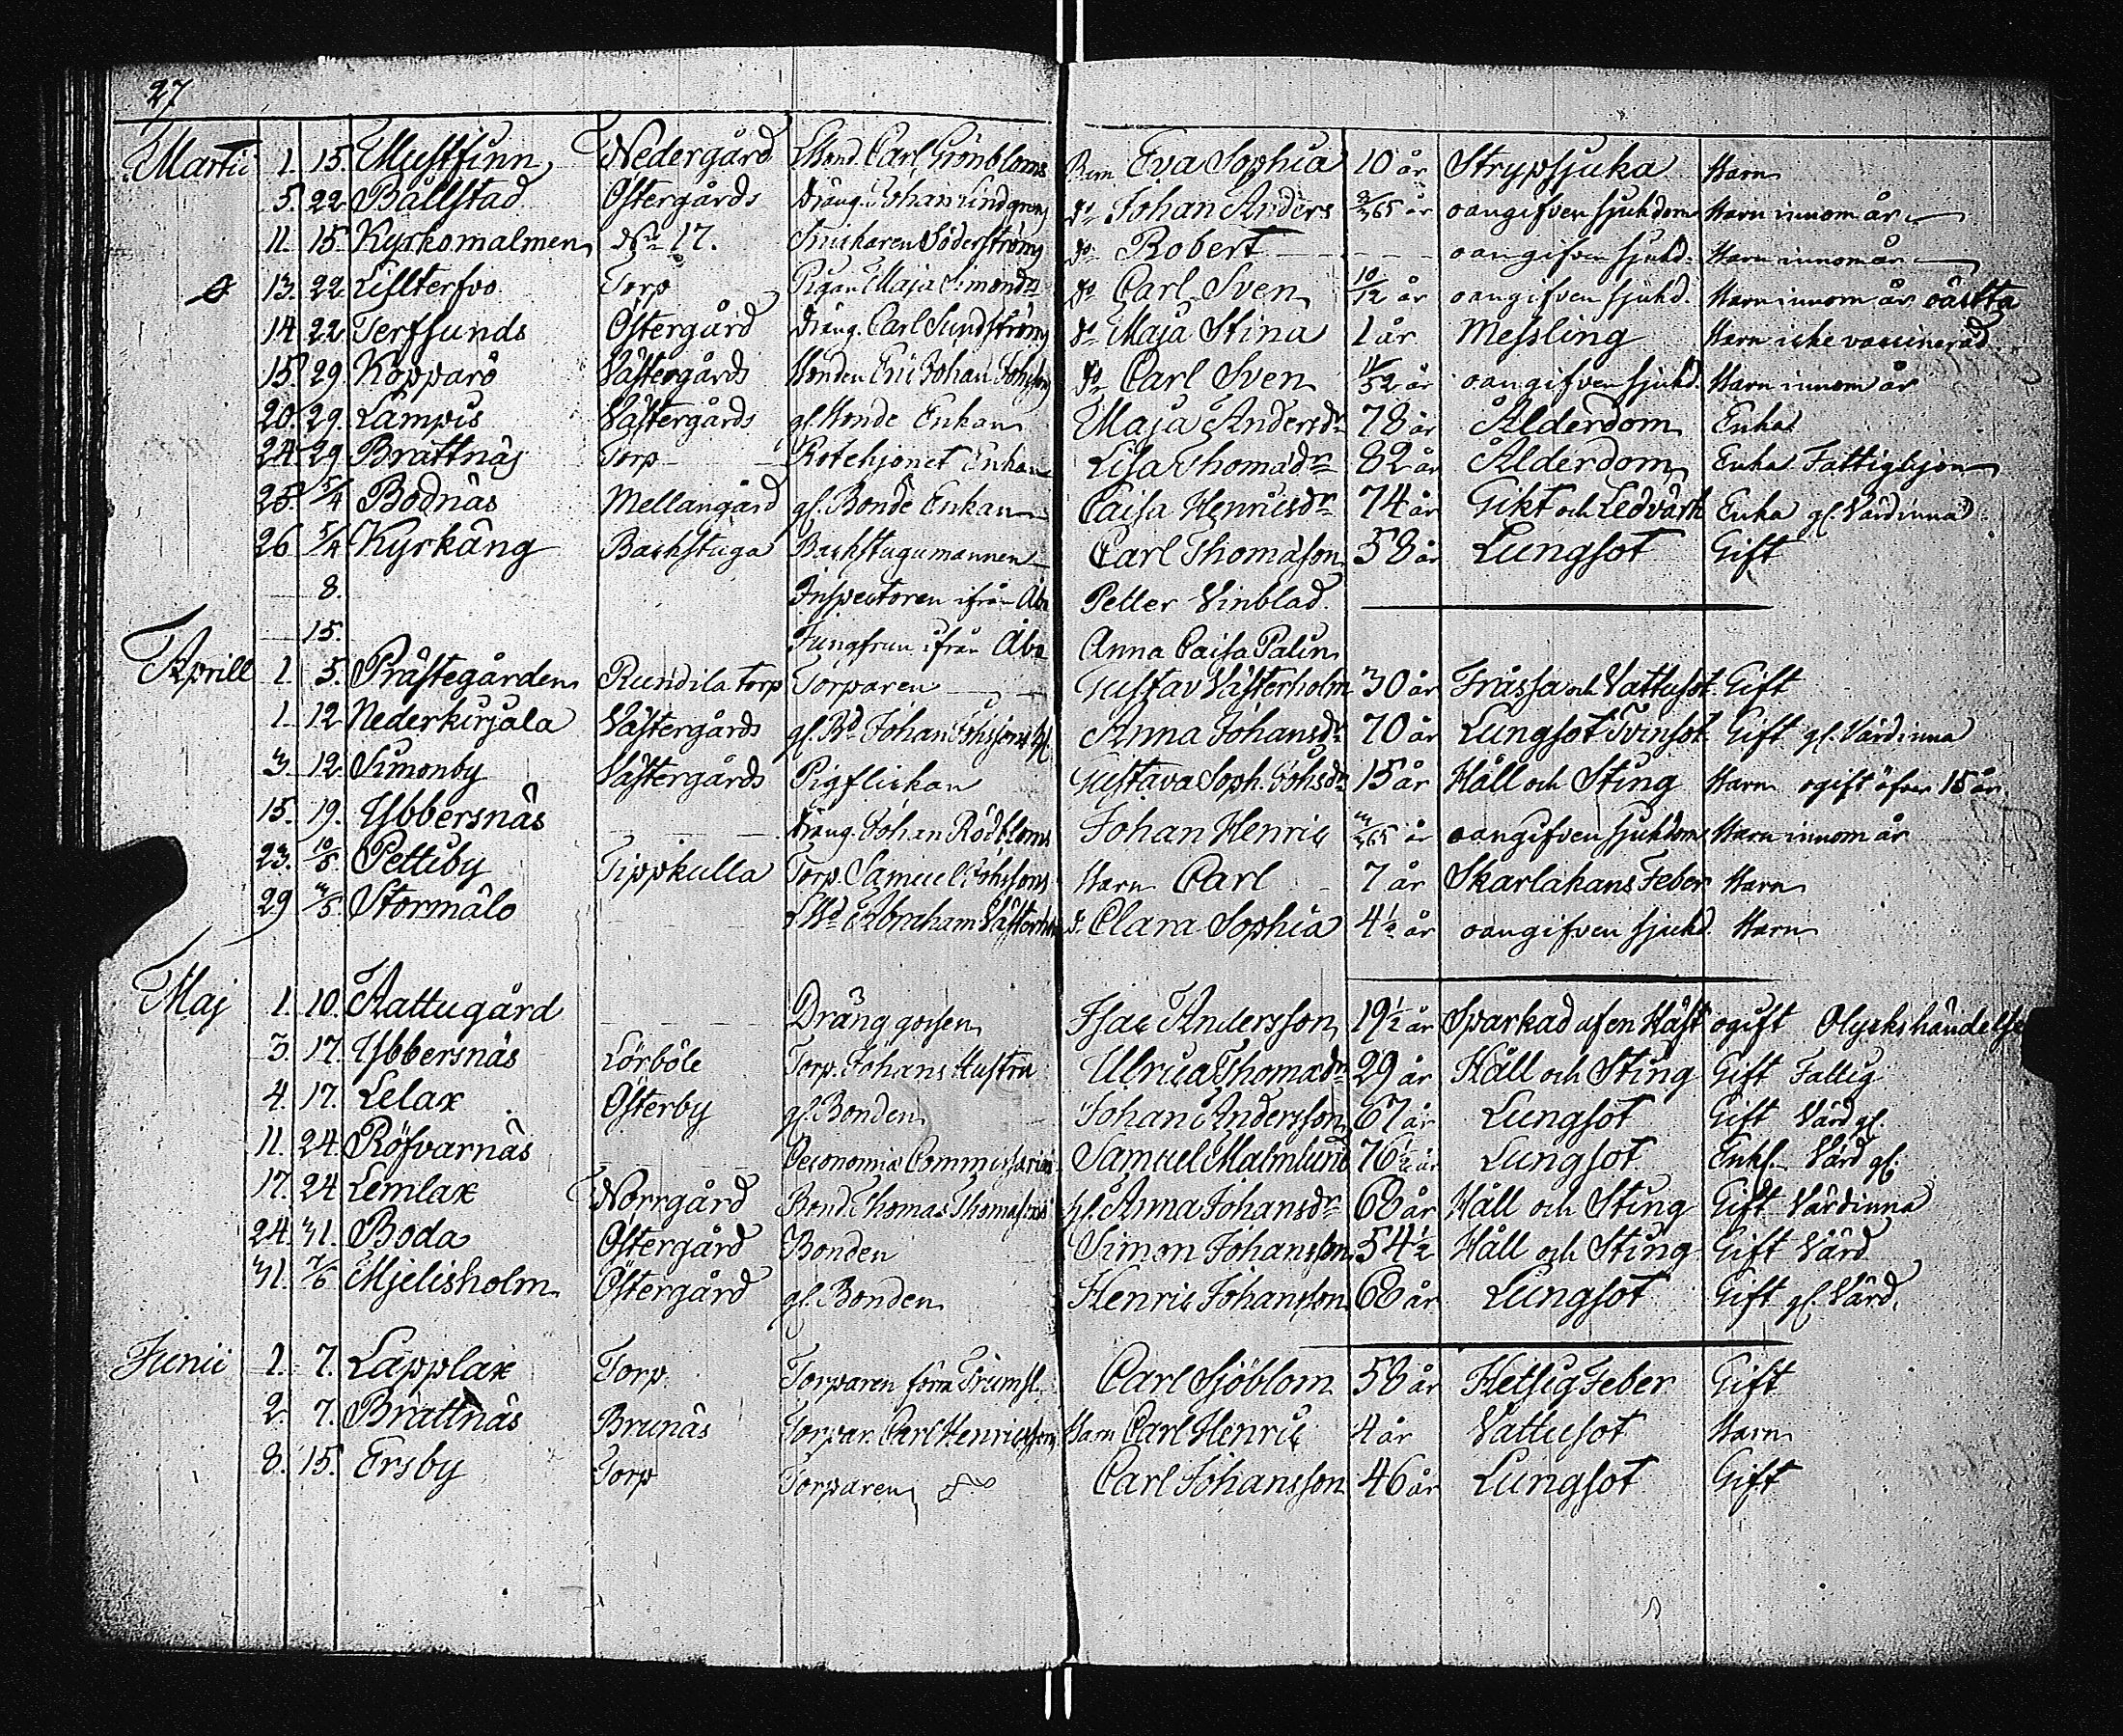 27
Martii 1. 15. Mustfinn Nedergård Bond. Carl Grönbloms Barn Eva Sophia 10 år Strypsjuka Barn
5. 22 Bållstad Östergårds Dräng. Johan Lindgrens do Johan Anders 2/365 år oangifven sjukdom Barn innom år
11. 15. Kyrkomalmen No 17. Snickaren Söderströms do Robert oangifven sjukd. Barn innom år
13. 22 Torp Pigan Maja Simonsdr do Carl Sven 10/12 år oangifven sjukd. Barn innom år oäckta
14 22 Terfsunds Östergård Dräng. Carl Sundströms do Maja Stina 1 år Messling Barn icke vaccinerad
15 29 Kopparö Västergårds Bonden Eric Johan Johssons do Carl Sven 11/52 år oangifven sjukd. Barn innom år
20. 29. Lampis Västergårds gl. Bonde Enkan Maja Andersdr 78 år Ålderdom Enka
24. 29 Brattnäs Torp Rotehjonet Enkan Lisa Thomadr 82 år Ålderdom Enka Fattighjon
25. 5/4 Bodnäs Mellangård gl. Bonde Enkan Caisa Henricsdr 74 år Gikt och Ledvärk Enka gl. Värdinna
26 5/4 Kyrkäng Backstuga Backstugumannen Carl Thomasson 58 år Lungsot Gift
8. Inspectoren ifrån Åbo Petter Vinblad
15. Jungfrun ifrån Åbo Anna Caisa Palin
Aprill 1 5. Prästegården Rundila torp Torparen Gustav Västerholm 30 år Frässa och Vattusot Gift
1. 12 Nederkirjala Västergårds gl. Bd Johan Johssons hl. Anna Johansdr 70 år Lungsot Tvinsot Gift gl. Värdinna
3. 12. Simonby Västergårds Pigflickan Gustava Soph. Johsdr 15 år Håll och Sting Barn ogift öfver 15 år
15. 19. Ybbersnäs Dräng. Johan Rödbloms Johan Henric 3/365 år oangifven sjukdom Barn innom år
23. 10/5 Pettiby Tippkulla Torp. Samuel Johssons Barn Carl 7 år Skarlakans Feber Barn
29 3/5 Stormälo Abraham do Clara Sophia 4½ år oangifven sjukd. Barn
Maj 1. 10. Aattugård Dräng gossen Isac Andersson 19½ år Sparkad af en Häst ogift Olyckshändelse
3. 17. Ybbersnäs Lörböle Torp. Johans Hustru Ulrica Thomadr 29 år Håll och Sting Gift Fattig
4. 17. Lelax Österby gl. Bonden Johan Andersson 67 år Lungsot Gift Värd gl.
11. 24 Röfvarnäs Oeconomiæ Commissarien Samuel Malmlund 76½ år Lungsot Enkl. Värd gl.
17. 24 Lemlax Norrgård Bond. Thomas Thomassons hl. Anna Johansdr 68 år Håll och Sting Gift Värdinna
24. 31. Boda Östergård Bonden Simon Johansson 54½ Håll och Sting Gift Värd
31. 7/6 Mjelisholm Östergård gl. Bonden Henric Johansson 68 år Lungsot Gift gl. Värd.
Junii 1 7. Lapplax Torp Torparen Carl Sjöblom 58 år Hetsig Feber Gift
2. 7. Brattnäs Brunäs Torpar. Carl Henricssons Barn Carl Henric 4 år Vattusot Barn
8. 15. Ersby Torp Torparen Carl Johansson 46 år Lungsot Gift